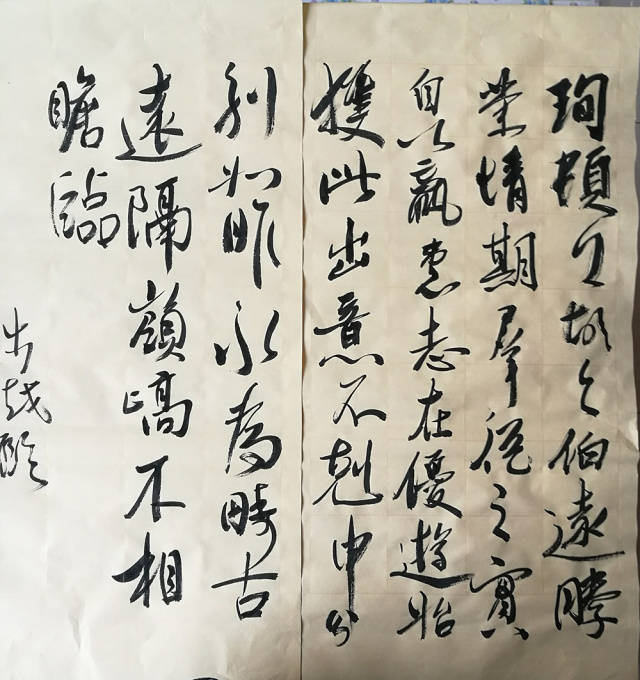 珣頓首頓首伯遠勝
業情期群從之寶
自以羸患志在優遊始
獲此出意不剋申分
別如昨永為疇古
遠隔嶺嶠不相
瞻臨